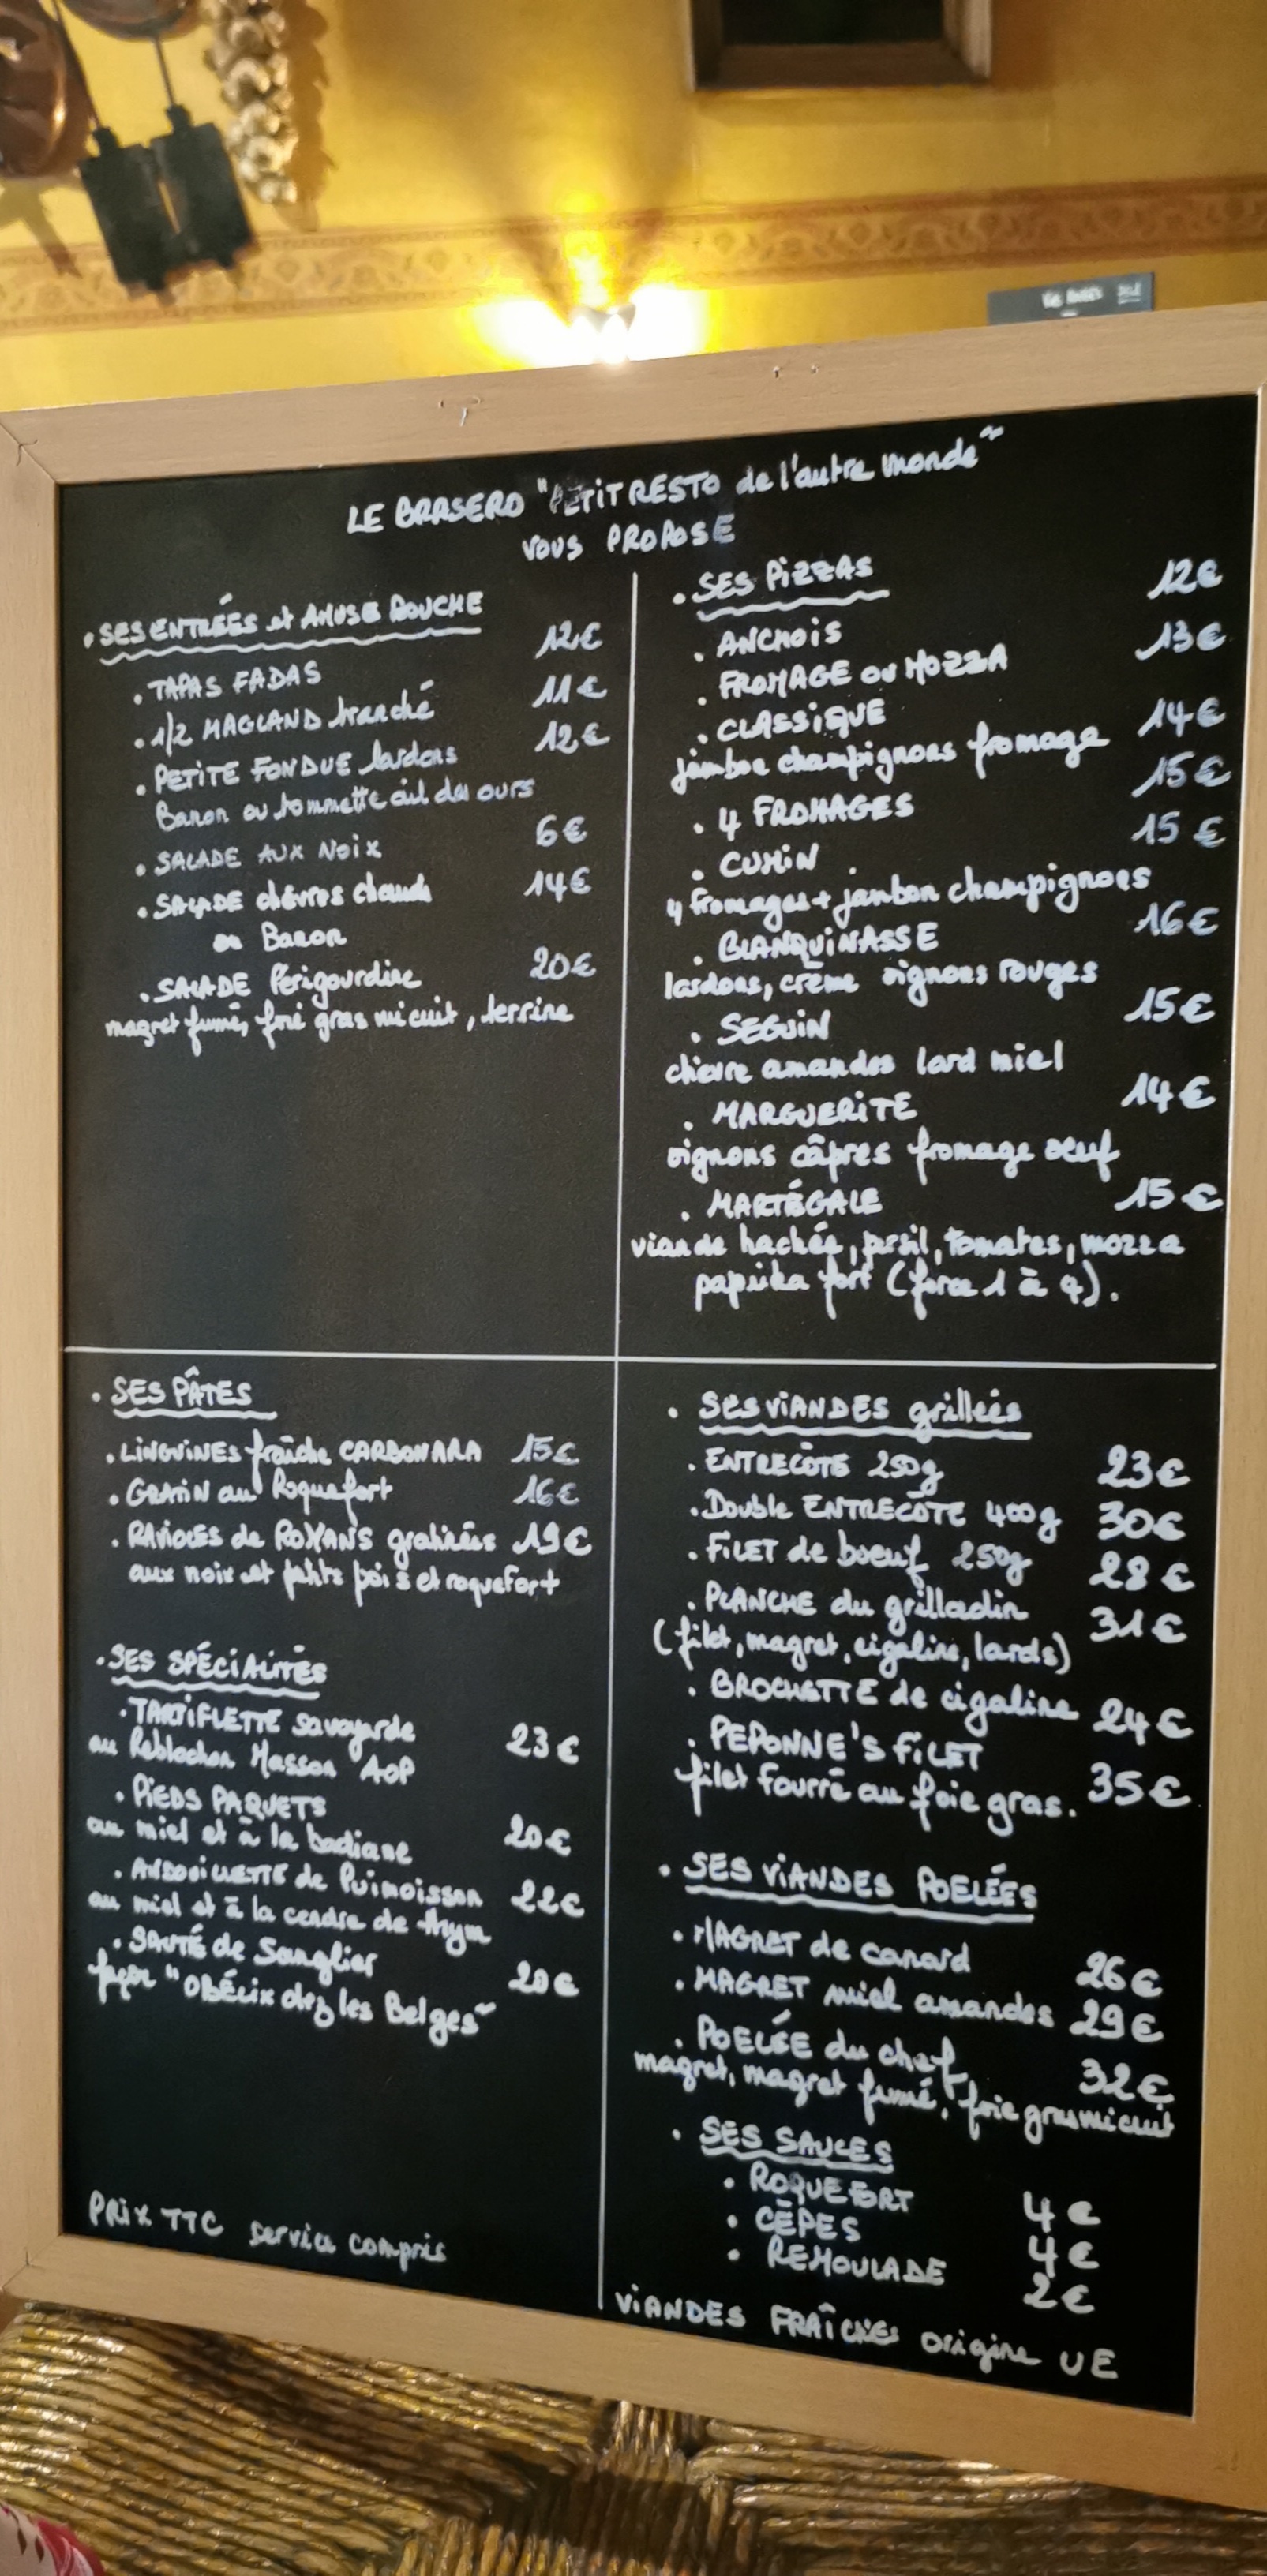 LE BRASERO "PETIT RESTO de l'autre monde"
VOUS PROPOSE
• SES ENTRÉES et AMUSE BOUCHE
• TAPAS FADAS 12€
• 1/2 MAGLAND tranché 11€
• PETITE FONDUE lardons 12€
Baron ou tommette ail des ours
• SALADE AUX NOIX 6€
• SALADE chèvres chauds 14€
ou Baron
• SALADE Périgourdine 20€
magret fumé, foie gras mi cuit, terrine
• SES PIZZAS
• ANCHOIS 12€
• FROMAGE OU MOZZA 13€
• CLASSIQUE 14€
jambon champignons fromage
• 4 FROMAGES 15€
• CUMIN 15€
4 fromages + jambon champignons
• BLANQUINASSE 16€
lardons, crème oignons rouges
• SEGUIN 15€
chèvre amandes lard miel
• MARGUERITE 14€
oignons câpres fromage oeuf
• MARTÉGALE 15€
viande hachée, persil, tomates, mozza
paprika fort (force 1 à 4).
• SES PÂTES
• LINGUINES fraîche CARBONARA 15€
• GRATIN au Roquefort 16€
• RAVIOLES de ROMANS gratinées 19€
aux noix et petits pois et roquefort
• SES SPÉCIALITÉS
• TARTIFLETTE Savoyarde
au Reblochon Masson AOP 23€
• PIEDS PAQUETS
au miel et à la badiane 20€
• ANDOUILLETTE de Puimoisson 22€
au miel et à la cendre de thym
• SAUTÉ de Sanglier 20€
façon "OBÉLIX chez les Belges"
PRIX TTC service compris
• SES VIANDES grillées
• ENTRECÔTE 250g 23€
• Double ENTRECÔTE 400g 30€
• FILET de boeuf 250g 28€
• PLANCHE du grilladin 31€
(filet, magret, cigaline, lards)
• BROCHETTE de cigaline 24€
• PEPONNE'S FILET
filet fourré au foie gras. 35€
• SES VIANDES POELÉES
• MAGRET de canard 26€
• MAGRET miel amandes 29€
• POELÉE du chef 32€
magret, magret fumé, foie gras mi cuit
• SES SAUCES
• ROQUEFORT 4€
• CÊPES 4€
• REMOULADE 2€
VIANDES FRAÎCHES origine UE